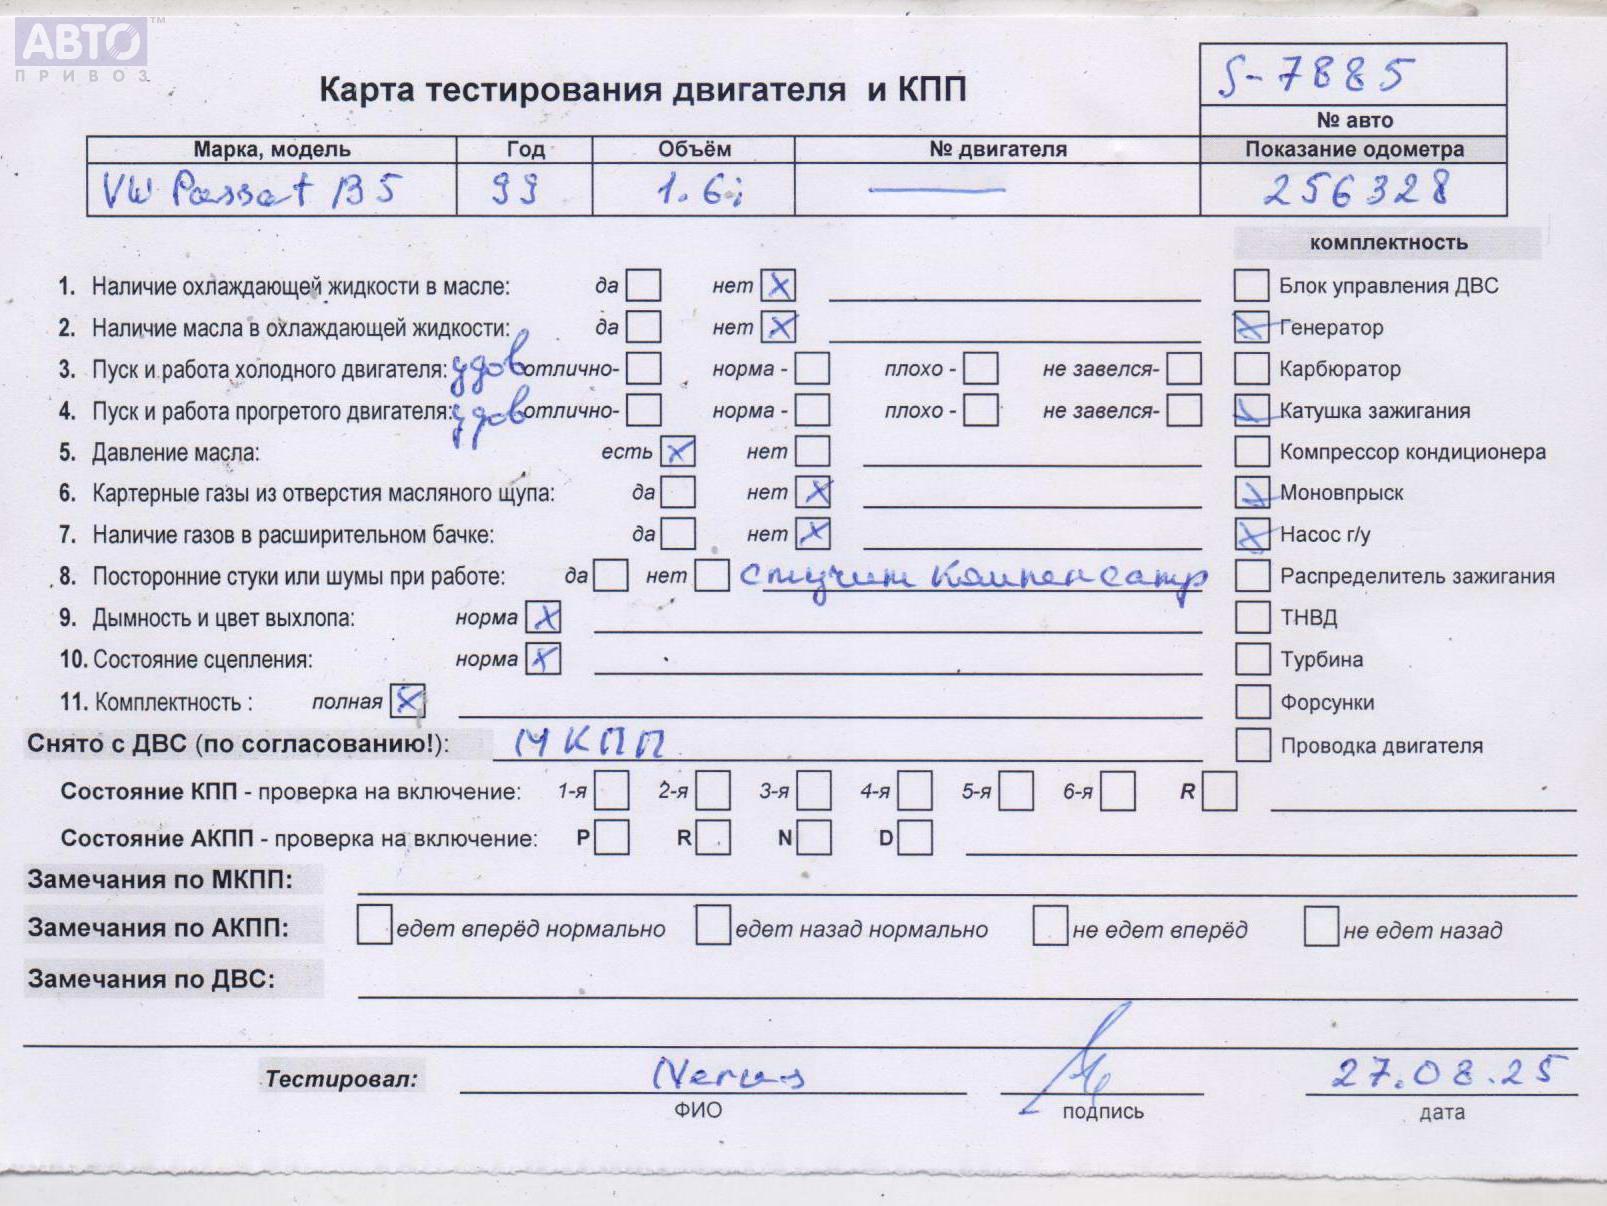 АВТО™
ПРИВОЗ
Карта тестирования двигателя и КПП
S-7885
№ авто
Марка, модель Год Объём № двигателя Показание одометра
VW Passat B5 99 1.6i — 256328
комплектность
1. Наличие охлаждающей жидкости в масле: да нет X Блок управления ДВС
2. Наличие масла в охлаждающей жидкости: да нет X X Генератор
3. Пуск и работа холодного двигателя: удов отлично- норма - плохо - не завелся- Карбюратор
4. Пуск и работа прогретого двигателя: удов отлично- норма - плохо - не завелся- X Катушка зажигания
5. Давление масла: есть X нет Компрессор кондиционера
6. Картерные газы из отверстия масляного щупа: да нет X X Моновпрыск
7. Наличие газов в расширительном бачке: да нет X X Насос г/у
8. Посторонние стуки или шумы при работе: да нет стучит компенсатр Распределитель зажигания
9. Дымность и цвет выхлопа: норма X ТНВД
10. Состояние сцепления: норма X Турбина
11. Комплектность : полная X Форсунки
Снято с ДВС (по согласованию!): МКПП Проводка двигателя
Состояние КПП - проверка на включение: 1-я 2-я 3-я 4-я 5-я 6-я R
Состояние АКПП - проверка на включение: P R N D
Замечания по МКПП:
Замечания по АКПП: едет вперёд нормально едет назад нормально не едет вперёд не едет назад
Замечания по ДВС:
Тестировал: 27.08.25
ФИО подпись дата